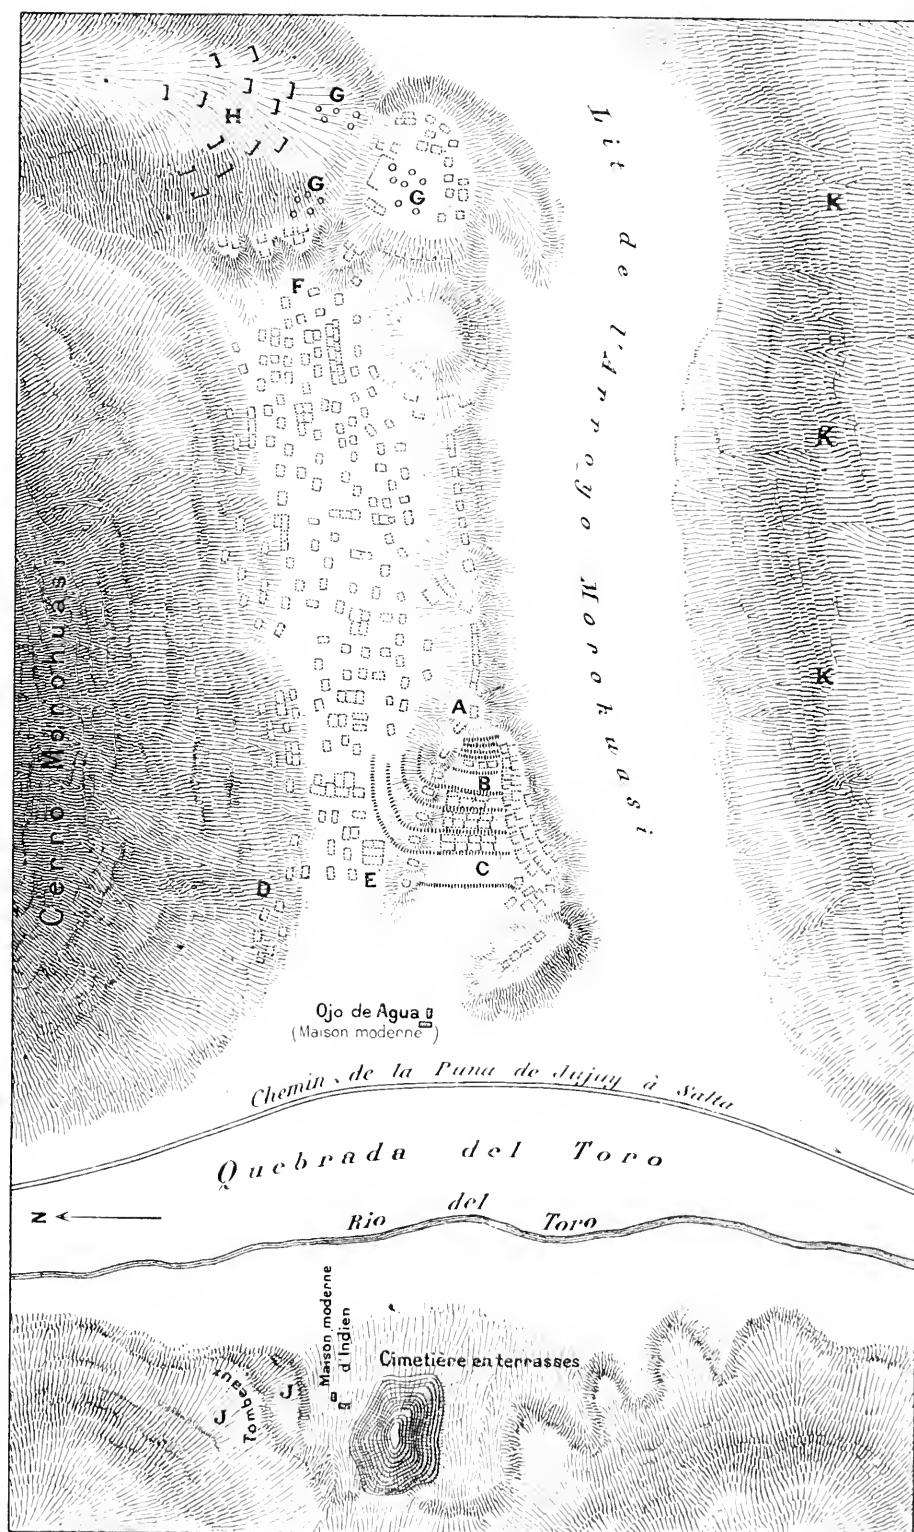 H
G
G
G
F
Lit de l'Arroyo Morohuasi
K
K
K
Cerro Morohuasi
A
B
C
D
E
Ojo de Agua
(Maison moderne)
Chemin de la Puna de Jujuy à Salta
Quebrada del Toro
N
Rio del Toro
Maison moderne
d'Indien
Cimetière en terrasses
Tombeaux
J
J